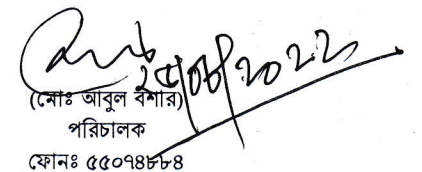 ২৫/০৮/২০২২
(মোঃ আবুল বশার)
পরিচালক
ফোনঃ ৫৫০৭৪৮৮৪